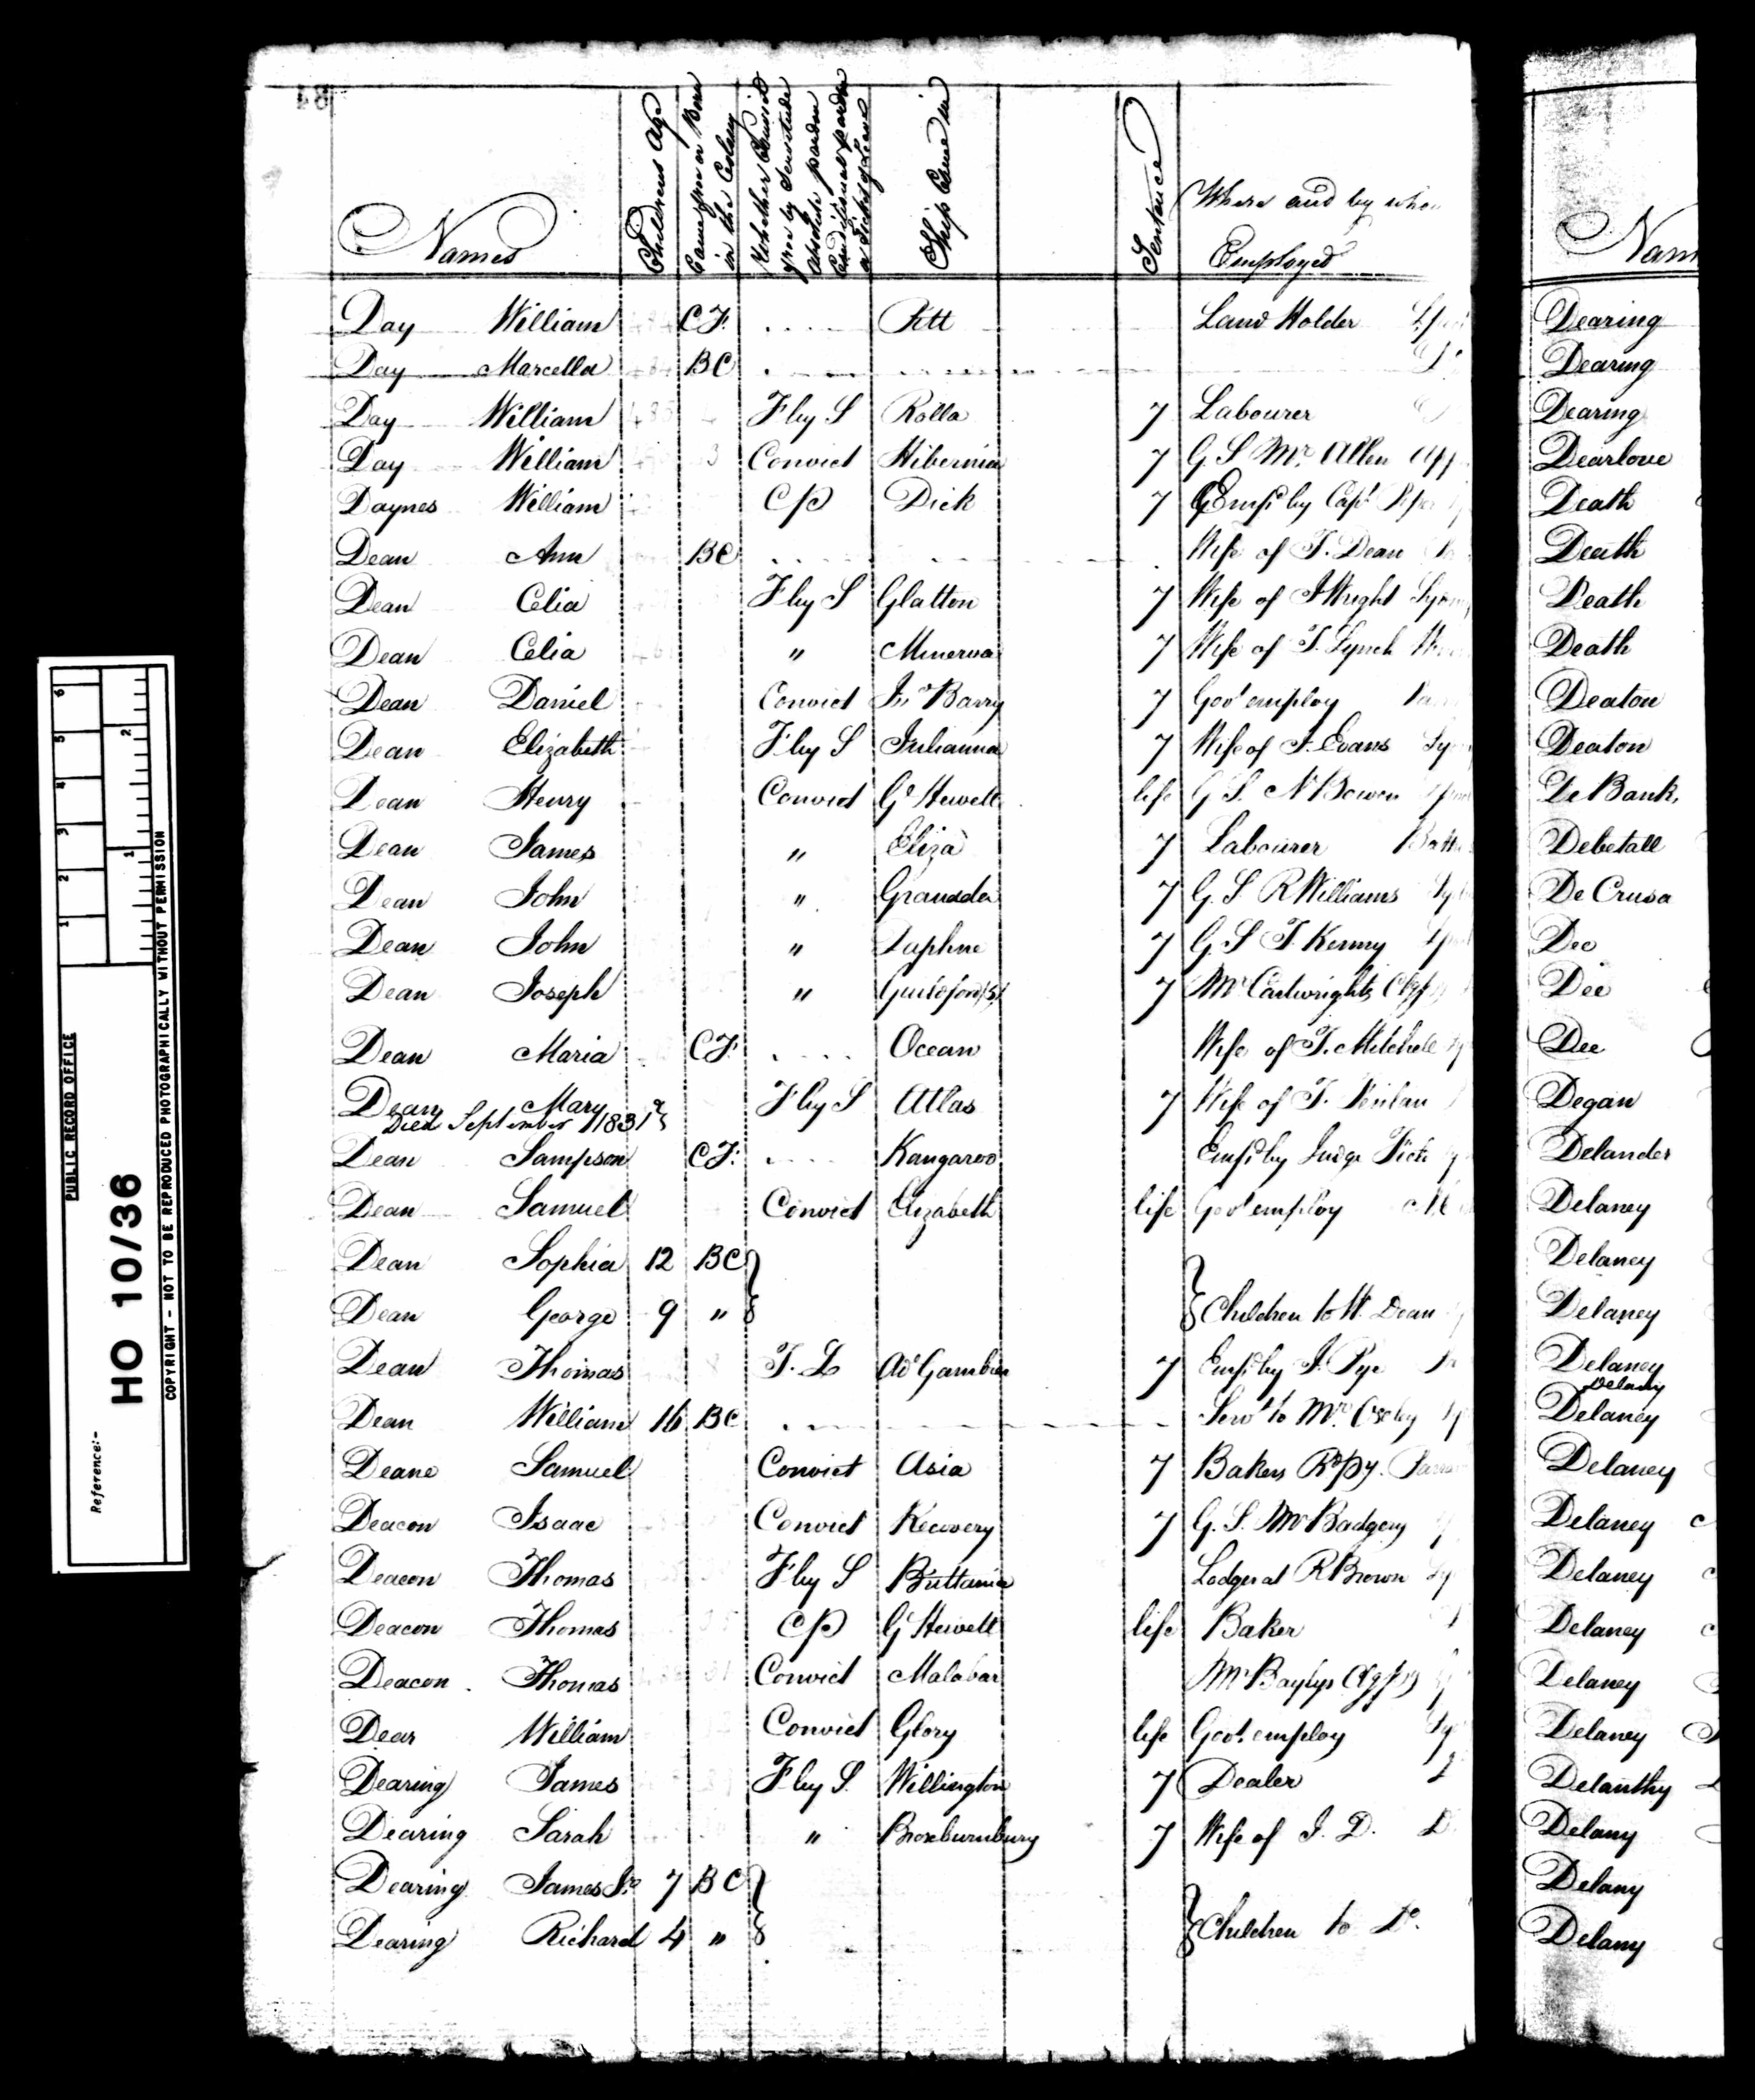 84
Names
Childrens Age
Came free or Born
in the Colony
Whether Convict
free by Servitude
absolute pardon
Conditional pardon
or Ticket of Leave
Ship Came in
Sentence
Where and by whom
Employed
Day William CF. Pitt Land Holder
Day Marcella BC
Day William F by S Rolla 7 Labourer
Day William Convict Hibernia 7 G S Mr. Allen
Daynes William CP Dick 7 Emp. by Capt
Dean Ann BC Wife of T. Dean
Dean Celia F by S Glatton 7 Wife of J Wright
Dean Celia " Minerva 7 Wife of T. Lynch
Dean Daniel Convict Jno Barry 7 Govt employ
Dean Elizabeth F by S Julianna 7 Wife of J. Evans
Dean Henry Convict Gl Hewett life G S. N Bowen
Dean James " Eliza 7 Labourer
Dean John " Granada 7 G. S R Williams
Dean John " Daphne 7 G. S T. Kenny
Dean Joseph " Guildford (5) 7 Mr Cartwrights
Dean Maria CF. Ocean Wife of T. Mitchell
Dean Mary F by S Atlas 7 Wife of T.
Died September 1831
Dean Sampson CF. Kangaroo Emp. by Judge Field
Dean Samuel Convict Elizabeth life Govt employ
Dean Sophia 12 BC
Dean George 9 " Children to W. Dean
Dean Thomas T. L Ad Gambier 7 Emp. by J. Pye
Dean William 16 BC Servt to Mr. Oxley
Deane Samuel Convict Asia 7 Bakers
Deacon Isaac Convict Recovery 7 G. S. Mr Badgery
Deacon Thomas F by S Brittania Lodges at R Brown
Deacon Thomas CP Gl Hewett life Baker
Deacon Thomas Convict Malabar Mr Baylys
Dear William Convict Glory life Govt. employ
Dearing James F by S. Wellington 7 Dealer
Dearing Sarah " Broxburnbury 7 Wife of J. D.
Dearing James Jr. 7 BC
Dearing Richard 4 " Children to Do.
Dearing
Dearing
Dearing
Dearlove
Death
Death
Death
Death
Deaton
Deaton
De Bank,
Debetall
De Crusa
Dee
Dee
Dee
Degan
Delander
Delaney
Delaney
Delaney
Delaney
Delany
Delaney
Delaney
Delaney
Delaney
Delaney
Delaney
Delaney
Delanthy
Delany
Delany
Delany
PUBLIC RECORD OFFICE
Reference:-
HO 10/36
COPYRIGHT - NOT TO BE REPRODUCED PHOTOGRAPHICALLY WITHOUT PERMISSION
1 2 3 4 5 6
1 2